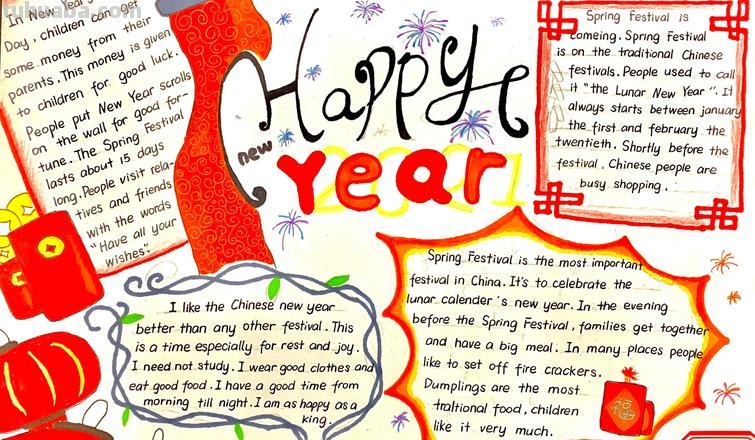 tuhuaba.com
In New Year's
Day, children can get
some money from their
parents. This money is given
to children for good luck.
People put New Year scrolls
on the wall for good for-
tune. The Spring Festival
lasts about 15 days
long. People visit rela-
tives and friends
with the words
"Have all your
wishes".
Happy
new
Year
2021
Spring Festival is
comeing. Spring Festival
is on the traditional Chinese
festivals. People used to call
it "the Lunar New Year". It
always starts between january
the first and february the
twentieth. Shortly before the
festival, Chinese people are
busy shopping.
I like the Chinese new year
better than any other festival. This
is a time especially for rest and joy.
I need not study. I wear good clothes and
eat good food. I have a good time from
morning till night. I am as happy as a
king.
Spring Festival is the most important
festival in China. It's to celebrate the
lunar calender's new year. In the evening
before the Spring Festival, families get together
and have a big meal. In many places people
like to set off fire crackers.
Dumplings are the most
traltional food, children
like it very much.
福